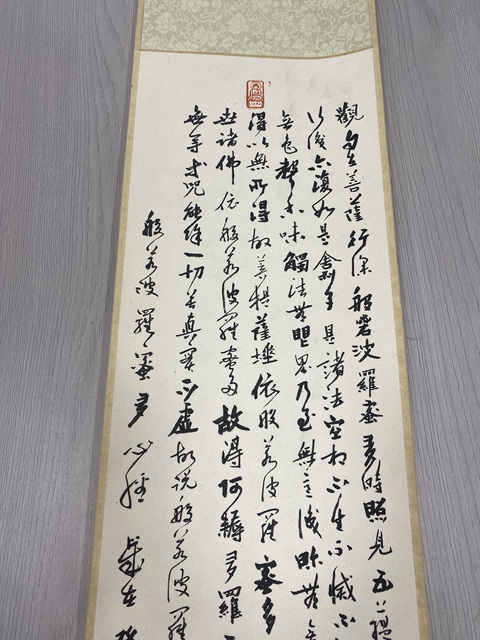 觀自在菩薩行深般若波羅蜜多時照見五蘊
行識亦復如是舍利子是諸法空相不生不滅不
無色聲香味觸法無眼界乃至無意識界無
得以無所得故菩提薩埵依般若波羅蜜多
世諸佛依般若波羅蜜多故得阿耨多羅三
無等等咒能除一切苦真實不虛故説般若波羅
般若波羅蜜多心經 歲在